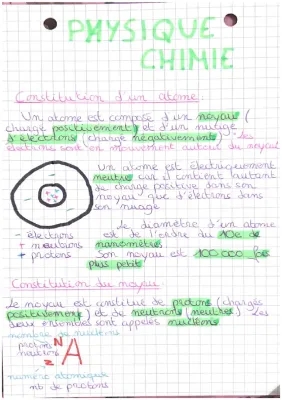 PHYSIQUE
CHIMIE
Constitution d'un atome:
Un atome est composé d'un noyau (
chargé positivement) et d'un nuage
d'électrons (chargé négativement). les
électrons sont en mouvement autour du noyau
Un atome est électriquement
neutre car il contient autant
de charge positive dans son
noyau que d'électrons dans
son nuage
Le diamètre d'un atome
est de l'ordre du 10e de
nanomètre.
Son noyau est 100 000 fois
plus petit
- électrons
+ neutrons
+ protons
Constitution du noyau
Le noyau est constitué de protons (chargés
positivement) et de neutrons (neutres). Les
deux ensembles sont appelés nucléons
nombre de nucléons
protons
neutrons
N
A
Z
numéro atomique
nb de protons